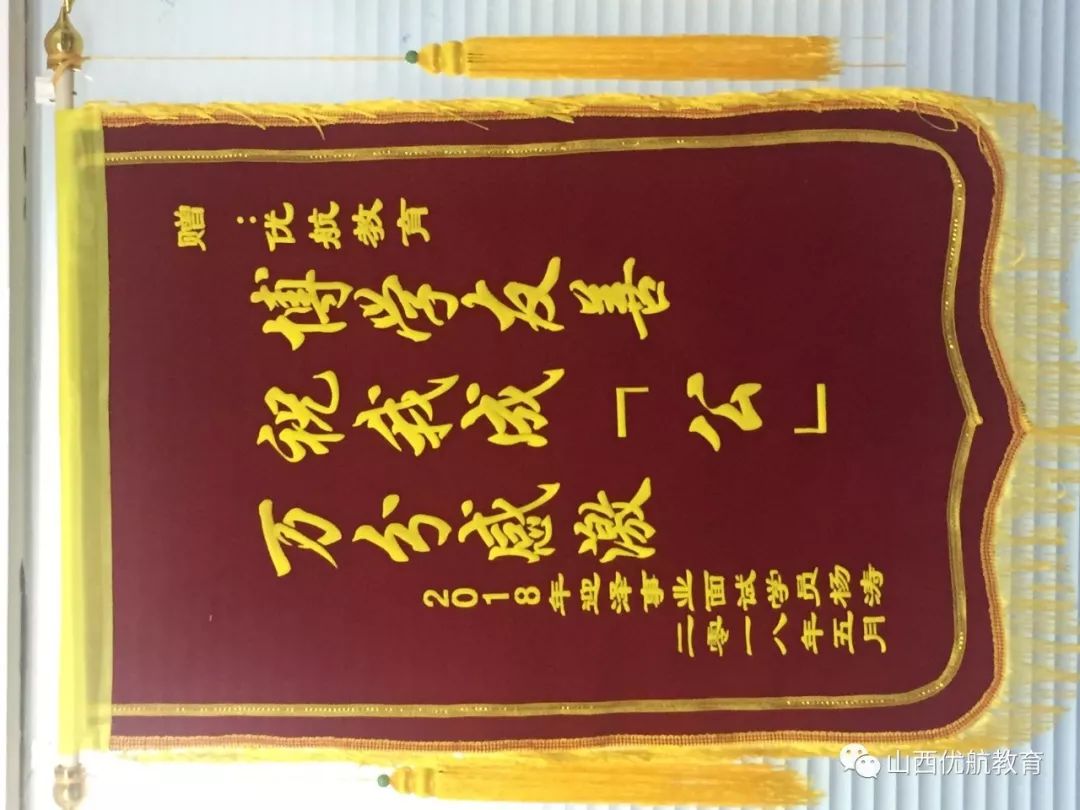 赠：优航教育
博学友善
祝我成「公」
万分感激
2018年迎泽事业面试学员杨涛
二零一八年五月
山西优航教育